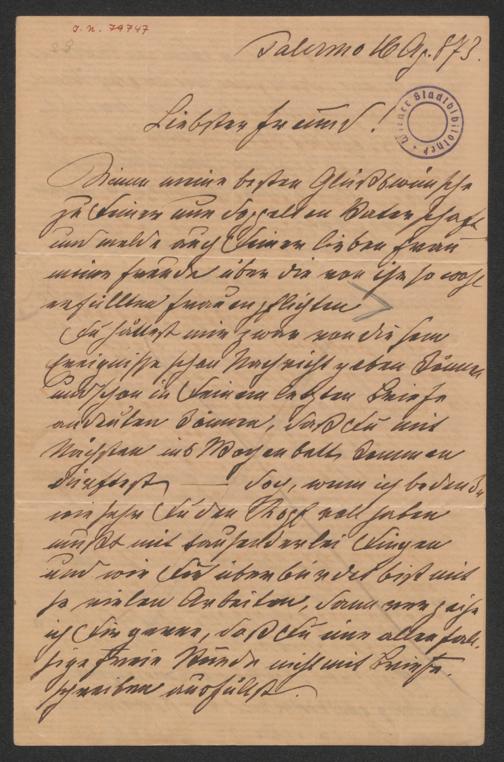 J. N. 79747
28
Palermo 16 Ap. 873.
Wiener Stadtbibliothek
Liebster Freund!
Nimm meine besten Glückswünsche
zu Deiner nun doppelten Vaterschaft
und melde auch Deiner lieben Frau
meine Freude über die von ihr so wohl
erfüllten Frauenpflichten
Du hättest mir zwar von diesem
Ereignisse schon Nachricht geben können
und schon in Deinem letzten Briefe
andeuten können, daß Du mit
Nächsten ins Wochenbett kommen
dürftest — doch, wenn ich bedenke
wie sehr Du den Kopf voll haben
mußt mit tausenderlei Dingen
und wie Du überbürdet bist mit
so vielen Arbeiten, dann verzeihe
ich Dir gerne, daß Du eine allenfal-
sige freie Stunde nicht mit Briefe-
schreiben ausfüllst.